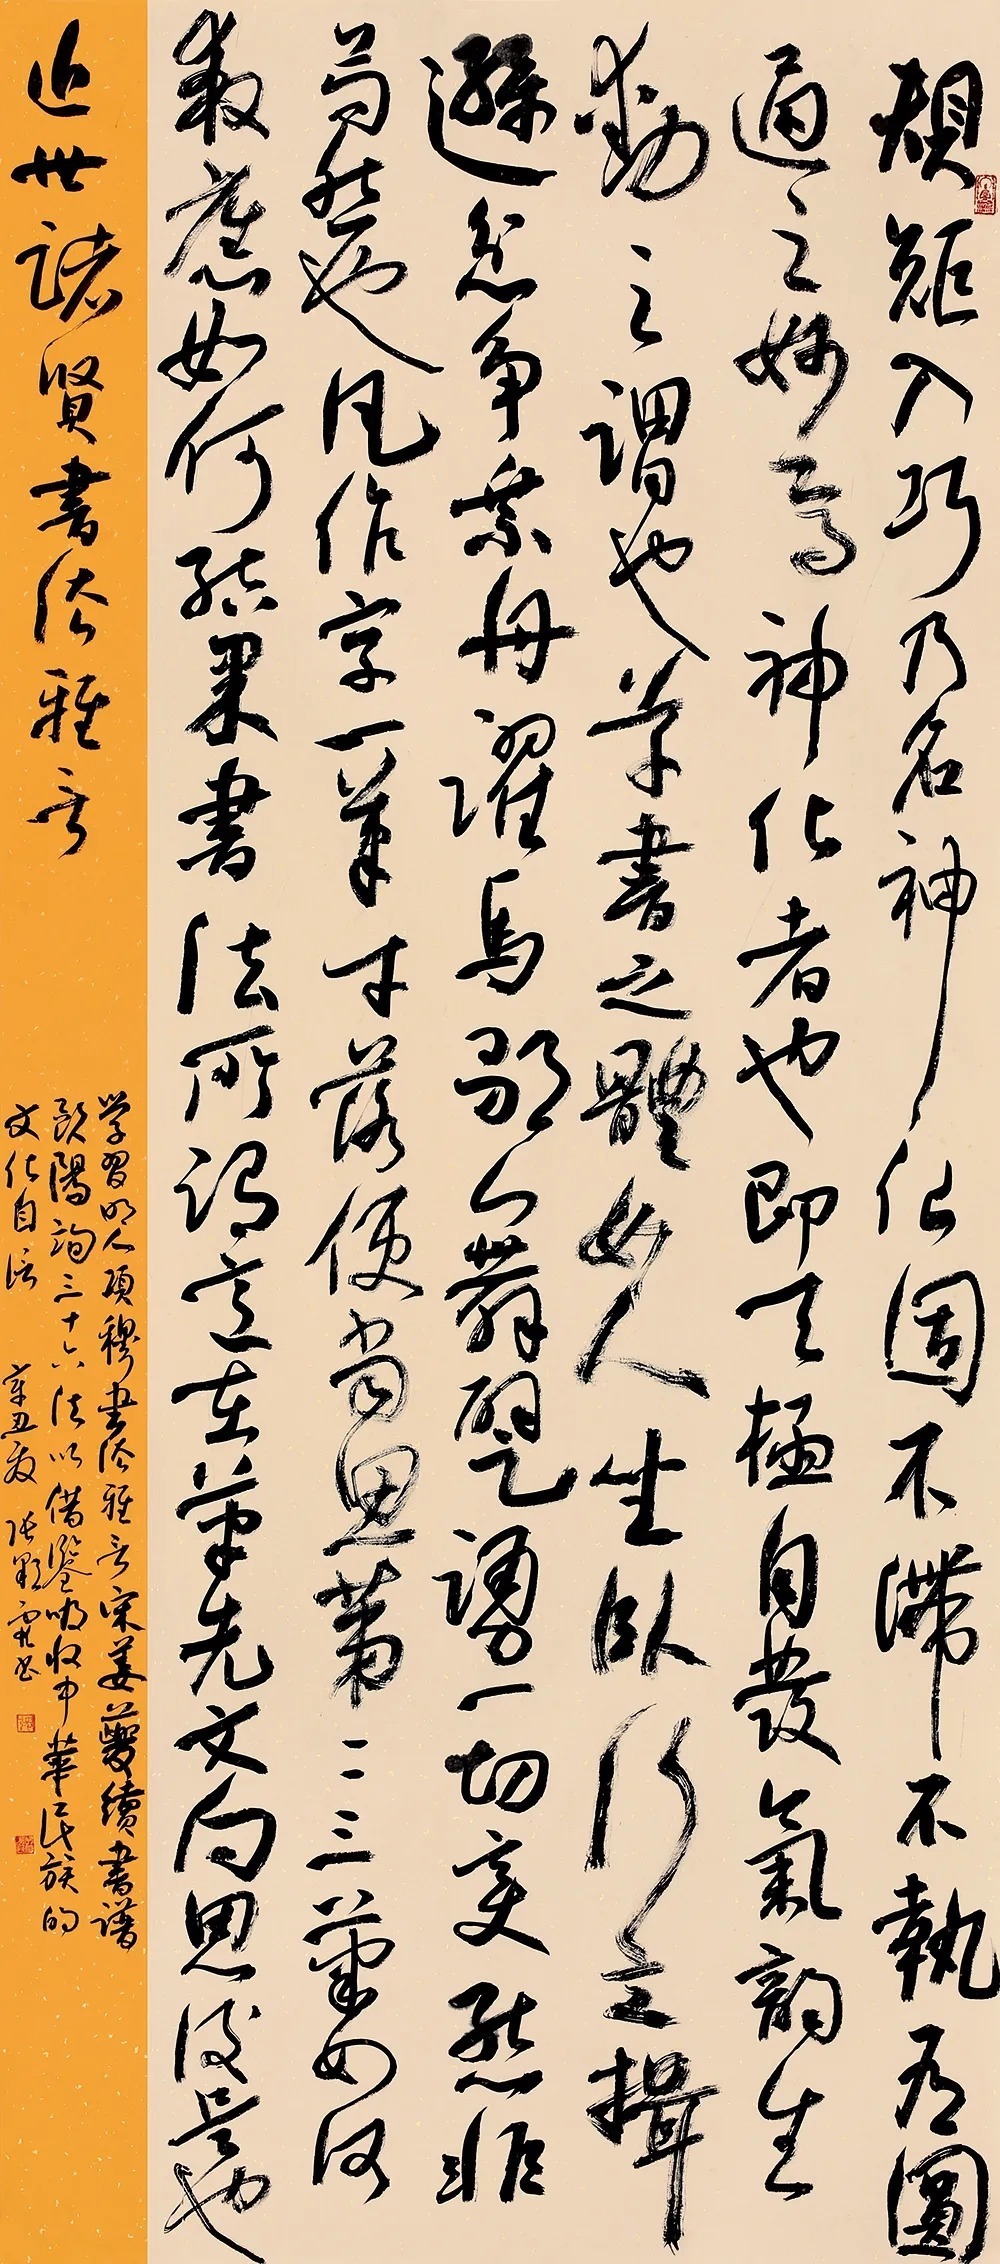 規矩入巧乃名神化固不滯不執有圓
通之妙焉神化者也即天極自發氣韵生
動之謂也草書之體如人坐臥行立揖
遜忿爭乘舟躍馬歌舞躄踊一切變態非
苟然也凡作字一筆才落便當思第二三筆如何
救應如何結果書法所謂意在筆先文向思後是也
近世諸賢書法雅言
学習明人項穆書法雅言宋姜夔續書譜
歐陽詢三十六法以借鑒吸收中華民族的
文化自信
辛丑夏